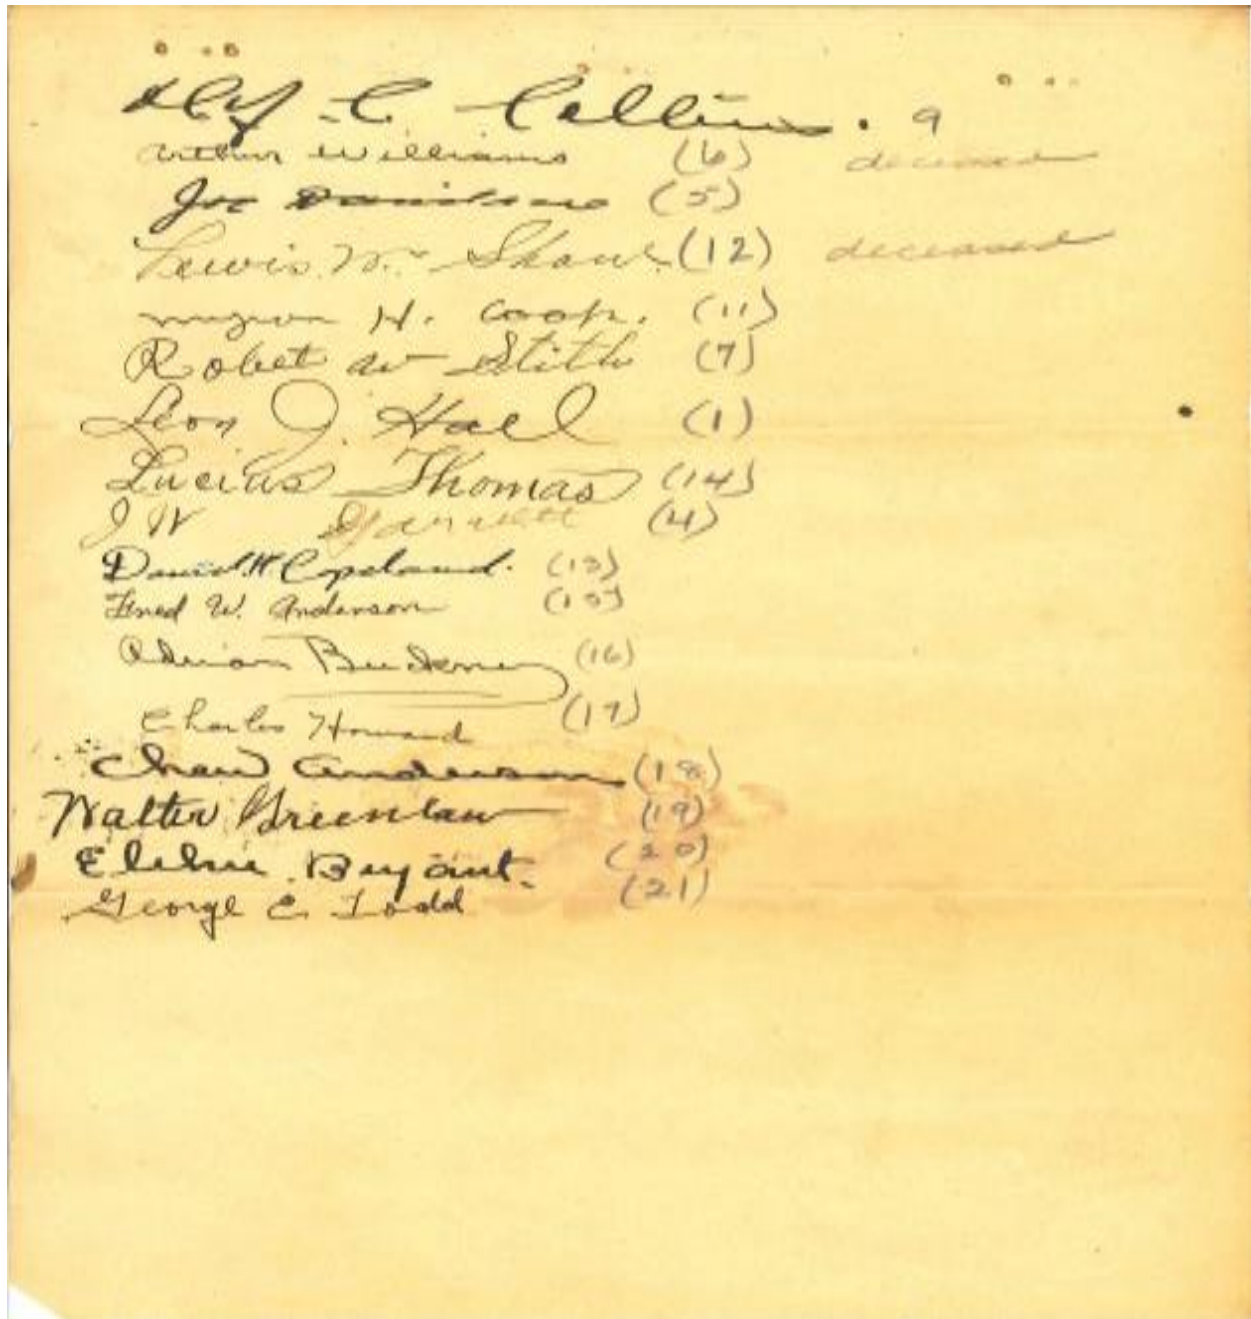 C Collins. 9
Arthur Williams (6) deceased
Joe Davidson (5)
Lewis W. Shaw. (12) deceased
H. Coop. (11)
Robet W Stith (7)
Leon J. Hall (1)
Lucius Thomas (14)
J W Garrett (4)
David W Copeland. (13)
Fred W. Anderson (15)
Adrian Buckner (16)
Charles Howard (17)
Anderson (18)
Walter Greenlaw (19)
Bryant. (20)
George E Todd (21)